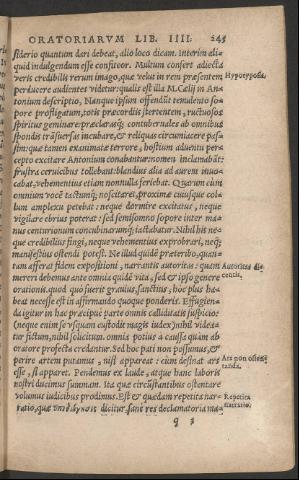 ORATORIARVM LIB. IIII. 245
siderio quantum dari debeat, alio loco dicam. Interim ali-
quid indulgendum esse confiteor. Multum confert adiecta
veris credibilis rerum imago, quæ velut in rem præsentem Hypotyposis.
perducere audientes videtur: qualis est illa M. Cælij in An-
tonium descriptio, Nanque ipsum offendūt temulento so-
pore profligatum, totis præcordijs stertentem, ructuosos
spiritus geminare: præclarasq; contubernales ab omnibus
spondis trāsuersas incubare, & reliquas circumiacere pas-
sim: quæ tamen exanimatæ terrore, hostium aduentu per-
cepto excitare Antonium conabantur: nomen inclamabāt:
frustra ceruicibus tollebant: blandius alia ad aurem inuo-
cabat, vehementius etiam nonnulla feriebat. Quarum cùm
omnium vocē tactumq; noscitaret, proximæ cuiusque col-
lum amplexu petebat: neque dormire excitatus, neque
vigilare ebrius poterat: sed semisomno sopore inter ma-
nus centurionum concubinarumq; iactabatur. Nihil his ne-
que credibilius fingi, neque vehementius exprobrari, neq;
manifestius ostendi potest. Ne illud quidē præteribo, quan-
tam afferat fidem expositioni, narrantis autoritas: quam Autoritas di-
mereri debemus ante omnia quidē vita, sed & ipso genere centis.
orationis. quod quò fuerit grauius, sanctius, hoc plus ha-
beat necesse est in affirmando quoque ponderis. Effugien-
da igitur in hac præcipuè parte omnis calliditatis suspicio:
(neque enim se vsquam custodit magis iudex) nihil videa-
tur fictum, nihil solicitum. omnia potius à causa quàm ab
oratore profecta credantur. Sed hoc pati non possumus, &
perire artem putamus, nisi appareat: cùm desinat ars Ars non ostend
esse, si apparet. Pendemus ex laude, atque hanc laboris tanda.
nostri ducimus summam. Ita quæ circūstantibus ostentare
volumus iudicibus prodimus. Est & quædam repetita nar- Repetita
ratio, quæ dicitur, sanè res declamatoria ma- narratio.
q 3